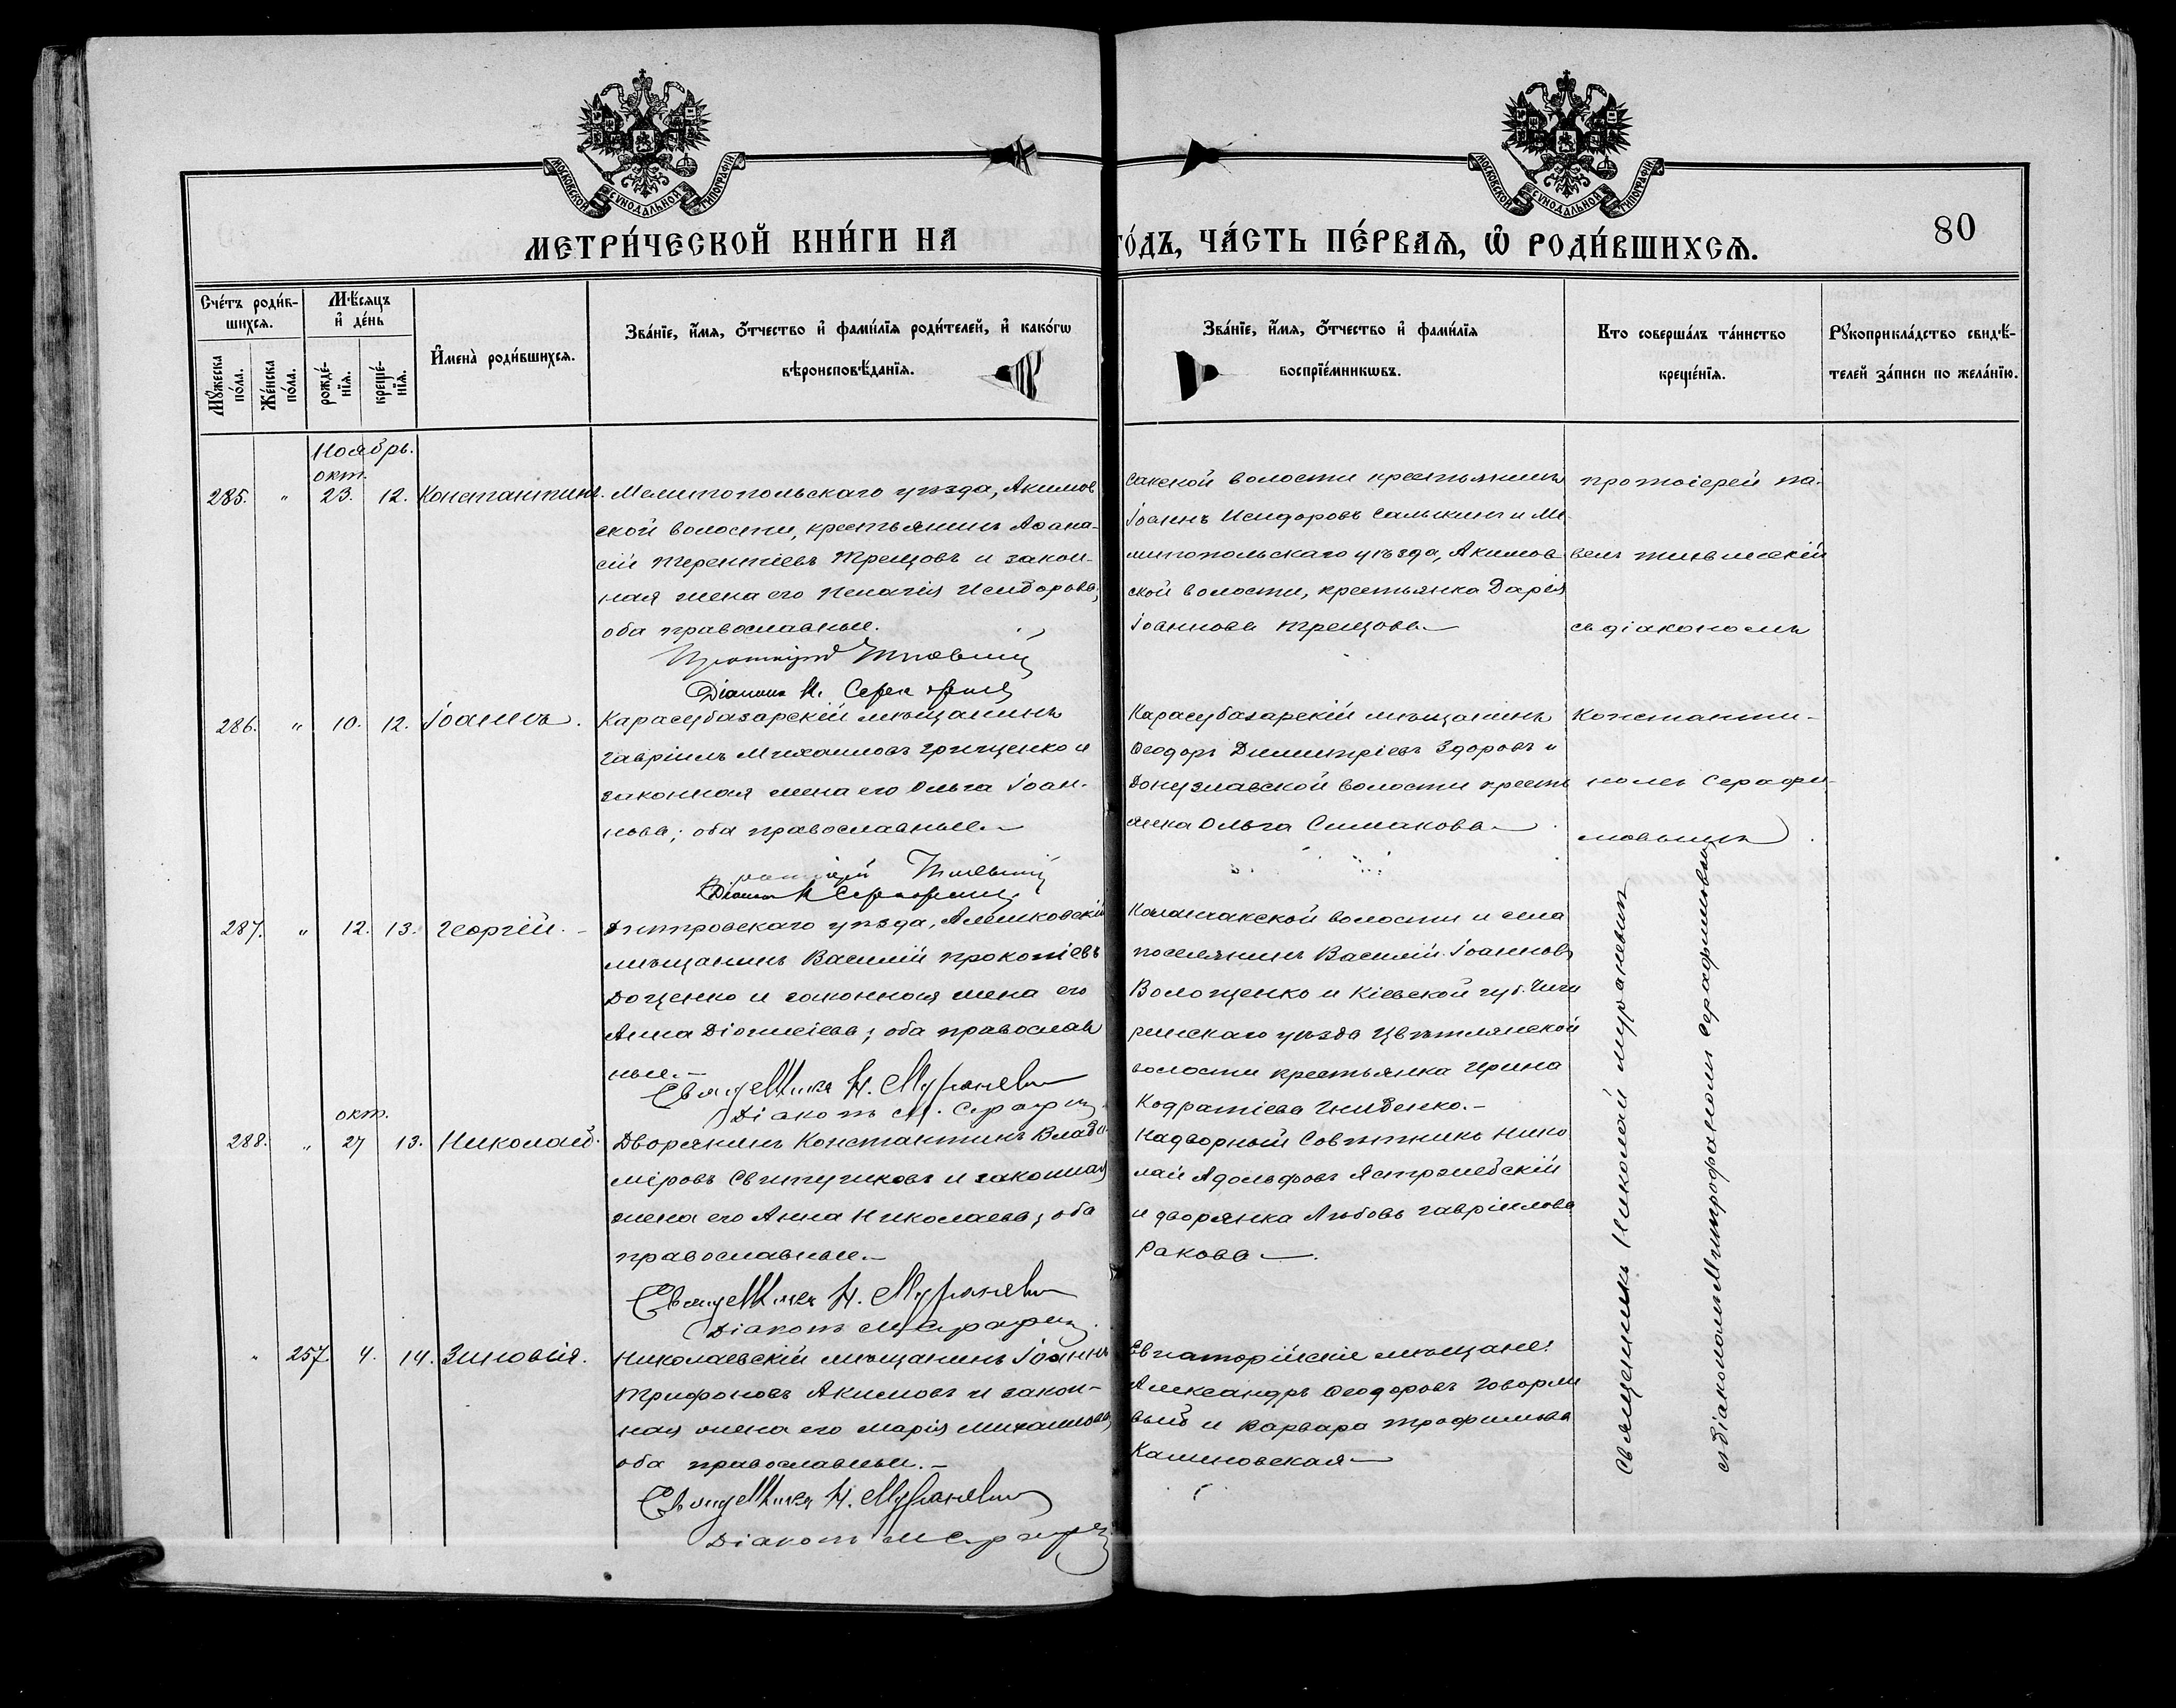 МОСКОВСКОЙ СУНОДАЛЬНОЙ ТИПОГРАФІИ
МОСКОВСКОЙ СУНОДАЛЬНОЙ ТИПОГРАФІИ
МЕТРИ́ЧЕСКОЙ КНИ́ГИ НА
ГО́ДЪ, ЧА́СТЬ ПЕ́РВАѦ, Ѡ РОДИ́ВШИХСѦ.
80
Сче́тъ роди́в-
шихсѧ.
Мѣ́сѧцъ
и де́нь
Мꙋ́жеска
по́ла.
Же́нска
по́ла.
рожде́-
нїѧ.
креще́-
нїѧ.
Имена̀ роди́вшихсѧ.
Зва́нїе, и́мѧ, о́тчество и фами́лїѧ роди́телей, и како́гѡ
вѣроисповѣ́данїѧ.
Зва́нїе, и́мѧ, о́тчество и фами́лїѧ
воспрїе́мникѡвъ.
Кто соверша́лъ та́инство
креще́нїѧ.
Рꙋкоприкла́дство свидѣ́-
телей за́писи по жела́нїю.
Ноябрь.
окт.
285. " 23. 12. Константинъ.
Мелитопольскаго уѣзда, Акимов
ской волости, крестьянинъ Аѳана-
сій Терентіевъ Трещовъ и закон-
ная жена его Пелагія Исидорова;
оба православные.
Протоіерей Тшевскій
Діаконъ М. Серафимовъ
Сакской волости крестьянинъ
Іоаннъ Исидоровъ Салыкинъ и Ме-
литопольскаго уѣзда, Акимов
ской волости, крестьянка Дарія
Іоаннова Трещова
протоіерей Па-
велъ
съ діакономъ
286. " 10. 12. Іоаннъ.
Карасубазарскій мѣщанинъ
Гавріилъ Михаиловъ Грищенко и
законная жена его Ольга Іоан-
нова; оба православные.
Карасубазарскій мѣщанинъ
Ѳеодоръ Димитріевъ Здоровъ и
Донузлавской волости кресть
янка Ольга Симакова
Константи-
номъ Серафи-
мовымъ
287. " 12. 13. Георгій.
Днѣпровскаго уѣзда, Алешковскій
мѣщанинъ Василій Прокопіевъ
Доценко и законная жена его
Анна Діонисіева; оба православ
ные.
Священникъ Н. Мураневичъ
Діаконъ М. Серафим
Каланчакской волости и села
поселянинъ Василій Іоанновъ
Волощенко и Кіевской губ. Чиги
ринскаго уѣзда Цвѣтлянской
волости крестьянка Ирина
Кодратіева Гниденко.
окт.
288. " 27 13. Николай.
Дворянинъ Константинъ Влади
міровъ Свѣтушковъ и законная
жена его Анна Николаева; оба
православные.
Священникъ Н. Мураневичъ
Діаконъ М Серафим
Надворный Совѣтникъ Нико
лай Адольфовъ Ястржебскій
и дворянка Любовь Гавріилова
Ракова
" 257 4. 14. Зиновія.
Николаевскій мѣщанинъ Іоаннъ
Трифоновъ Акимовъ и закон-
ная жена его Марія Михаилова,
оба православные.
Священникъ Н. Мураневичъ
Діаконъ М Серафим
Евпаторійскіе мѣщане:
Александръ Ѳеодоровъ Говорли
вый и Варвара Трофимова
Калиновская
Священникъ Николай Мураневичъ
съ діакономъ Митрофаномъ Серафимовымъ